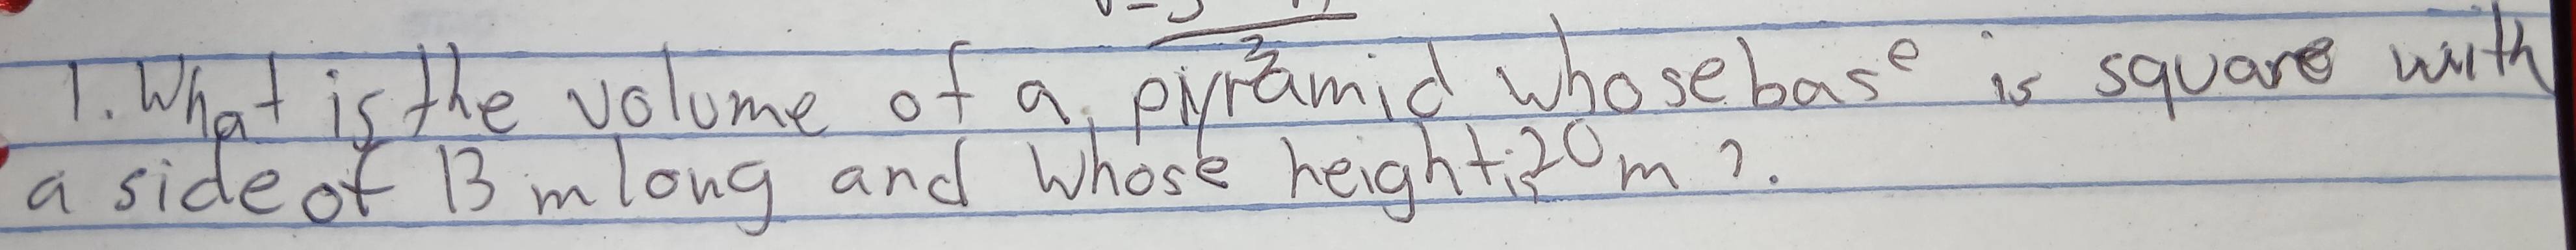 1. What is the volume of a pyramid whose base is square with
a side of 13 m long and whose height is 20 m ?.